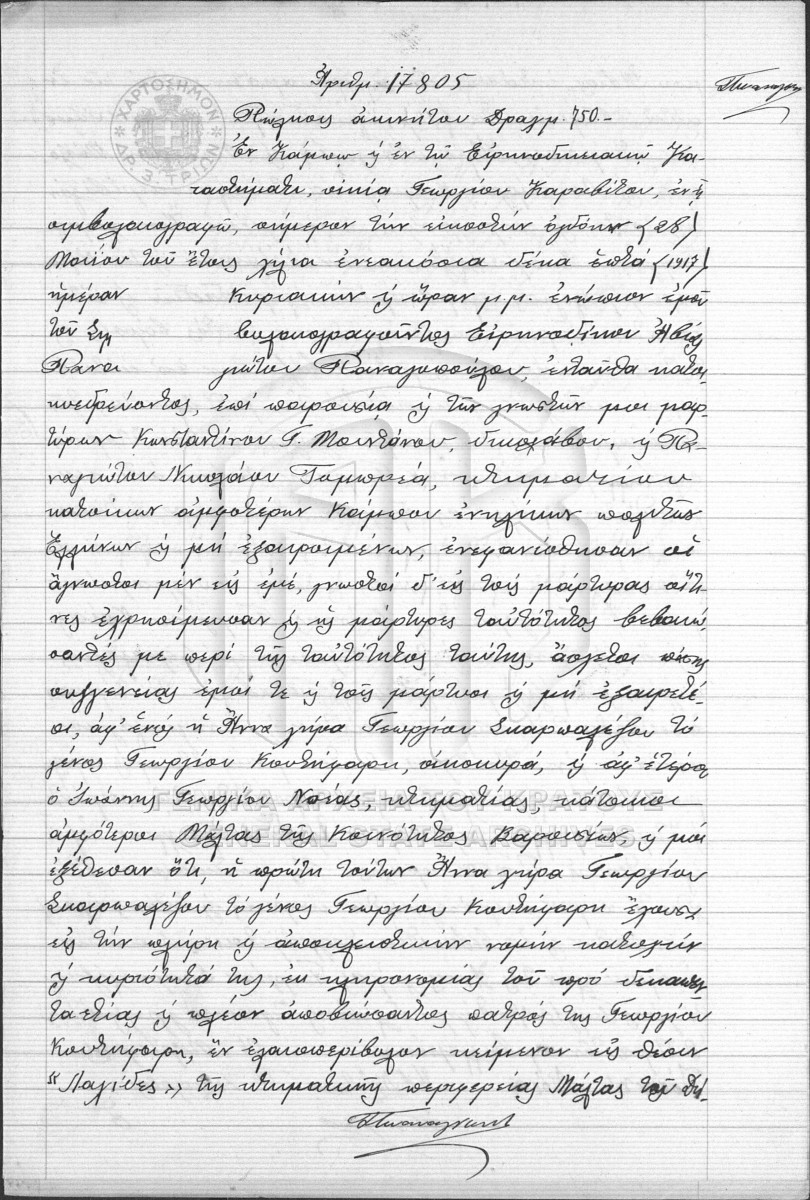 Ἀριθμ. 17805
ΧΑΡΤΟΣΗΜΟΝ
ΔΡ. 3. ΤΡΙΩΝ
Πώλησις ἀκινήτου Δραχμ. 750.-
Ἐν Κάμπῳ ᾗ ἐν τῷ Εἰρηνοδικειακῷ Κα-
ταστήματι, οἰκίᾳ Γεωργίου Καραβίτου, ἐν ᾧ
συμβολαιογραφῶ, σήμερον τὴν εἰκοστὴν ὀγδόην (28)
Μαΐου τοῦ ἔτους χίλια ἐνεακόσια δέκα ἑπτά (1917)
ἡμέραν Κυριακὴν ᾗ ὥραν μ.μ. ἐνώπιον ἐμοῦ
τοῦ Συμ βολαιογραφοῦντος Εἰρηνοδίκου Ἀβίας
Πανα γιώτου Παναγοπούλου, ἐνταῦθα κατοι
κοεδρεύοντος, ἐπὶ παρουσίᾳ ᾗ τῶν γνωστῶν μοι μαρ-
τύρων Κωνσταντίνου Γ. Μουντάνου, δικολάβου, ᾗ Πα-
ναγιώτου Νικολάου Γαμπρεά, κτηματίου
κατοίκων ἀμφοτέρων Κάμπου ἐνηλίκων πολιτῶν
Ἑλλήνων ᾗ μὴ ἐξαιρουμένων, ἐνεφανίσθησαν οἱ
ἄγνωστοι μὲν εἰς ἐμέ, γνωστοὶ δ' εἰς τοὺς μάρτυρας οἵτι-
νες ἐχρησίμευσαν ᾗ ὡς μάρτυρες ταὐτότητος βεβαιώ
σαντές με περὶ τῆς ταὐτότητος ταύτης, ἄσχετοι πάσης
συγγενείας ἐμοί τε ᾗ τοῖς μάρτυσι ᾗ μὴ ἐξαιρετέ-
οι, ἀφ' ἑνὸς ἡ Ἄννα χήρα Γεωργίου Σκαρπαλέζου τὸ
γένος Γεωργίου Κουτηφάρη, οἰκοκυρά, ᾗ ἀφ' ἑτέρου
ὁ Ἰωάννης Γεωργίου Νοέας, κτηματίας, κάτοικοι
ἀμφότεροι Μάλτας τῆς Κοινότητος Βαρουσίων, ᾗ μοὶ
ἐξέθεσαν ὅτι, ἡ πρώτη τούτων Ἄννα χήρα Γεωργίου
Σκαρπαλέζου τὸ γένος Γεωργίου Κουτηφάρη ἔχουσα
εἰς τὴν πλήρη ᾗ ἀποκλειστικὴν νομὴν κατοχὴν
ᾗ κυριότητά της, ἐκ κληρονομίας τοῦ πρὸ δεκαπεν
ταετίας ᾗ πλέον ἀποβιώσαντος πατρός της Γεωργίου
Κουτηφάρη, ἓν ἐλαιοπερίβολον κείμενον εἰς θέσιν
"Λαγίδες" τῆς κτηματικῆς περιφερείας Μάλτας τοῦ Δή-
ΓΕΝΙΚΑ ΑΡΧΕΙΑ ΤΟΥ ΚΡΑΤΟΥΣ
GENERAL STATE ARCHIVES